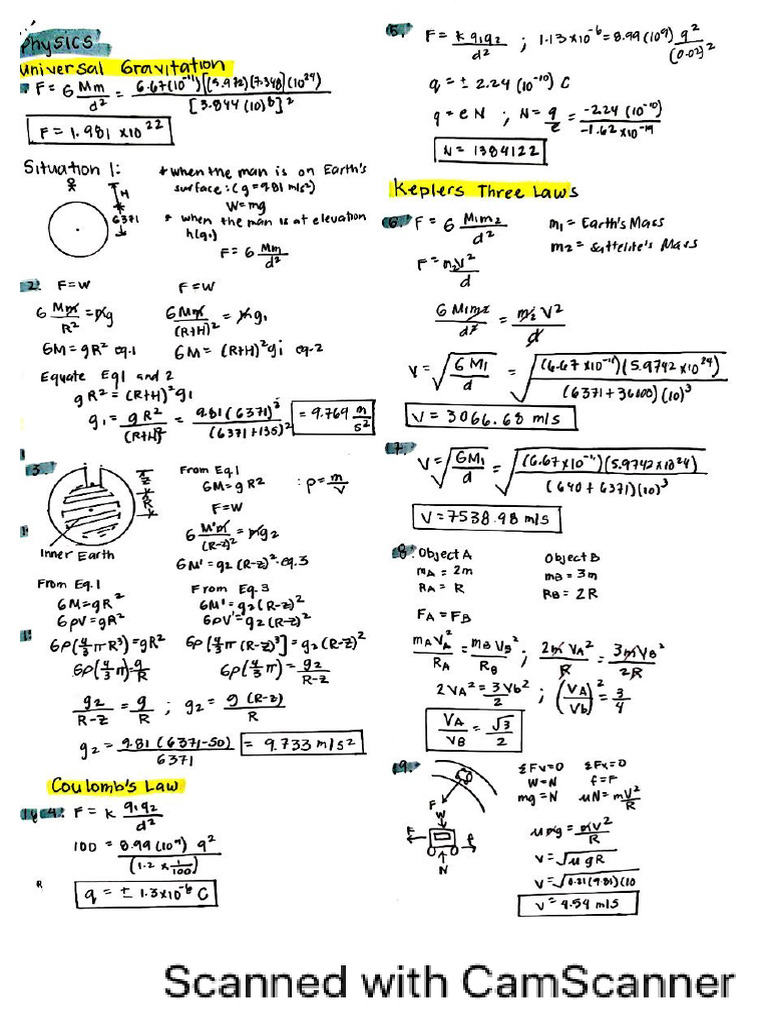 Physics
Universal Gravitation
F = G Mm/d² = 6.67(10⁻¹¹)[(5.972)(7.348)(10²⁴)/[3.844(10)⁸]²
F = 1.981 x10²²
Situation 1:
H
6371
* when the man is on Earth's
surface: (g = 9.81 m/s²)
W = mg
* when the man is at elevation
h(g₁)
F = G Mm/d²
2. F = W
F = W
G Mm/R² = mg
G Mm/(R+H)² = mg₁
GM = gR² eq.1
GM = (R+H)²g₁ eq.2
Equate Eq1 and 2
gR² = (R+H)²g₁
g₁ = gR²/(R+H)² = 9.81(6371)²/(6371+135)² = 9.769 m/s²
3.
z
R
Inner Earth
From Eq.1
GM = gR² : ρ = m/v
F = W
G M'm/(R-z)² = mg₂
GM' = g₂(R-z)² eq.3
From Eq.1
GM = gR²
GρV = gR²
Gρ(4/3 πR³) = gR²
Gρ(4/3 π) = g/R
From Eq.3
GM' = g₂(R-z)²
GρV' = g₂(R-z)²
Gρ[4/3 π(R-z)³] = g₂(R-z)²
Gρ(4/3 π) = g₂/R-z
g₂/R-z = g/R ; g₂ = g(R-z)/R
g₂ = 9.81(6371-50)/6371 = 9.733 m/s²
Coulomb's Law
4. F = k q₁q₂/d²
100 = 8.99(10⁹) q²/(1.2 x 1/100)
R
q = ± 1.3x10⁻⁶ C
5. F = k q₁q₂/d² ; 1.13x10⁻⁶ = 8.99(10⁹) q²/(0.02)²
q = ± 2.24(10⁻¹⁰) C
q = eN ; N = q/e = -2.24(10⁻¹⁰)/-1.62x10⁻¹⁹
N = 1384122
Keplers Three Laws
6. F = G M₁m₂/d²
m₁ = Earth's Mass
m₂ = sattelite's Mass
F = m₂V²/d
G M₁m₂/d² = m₂V²/d
V = √GM₁/d = √(6.67x10⁻¹¹)(5.9742x10²⁴)/(6371+36000)(10)³
V = 3066.68 m/s
7. V = √GM₁/d = √(6.67x10⁻¹¹)(5.9742x10²⁴)/(640+6371)(10)³
V = 7538.98 m/s
8. Object A
mA = 2m
RA = R
Object B
mB = 3m
RB = 2R
FA = FB
mAVA²/RA = mBVB²/RB ; 2mVA²/R = 3mVB²/2R
2VA² = 3Vb²/2 ; (VA/Vb)² = 3/4
VA/VB = √3/2
9.
F
W
F
f
N
ΣFv=0 ΣFx=0
W=N f=F
mg=N μN = mV²/R
μmg = mV²/R
V = √μgR
V = √0.21(9.81)(10
V = 4.54 m/s
Scanned with CamScanner